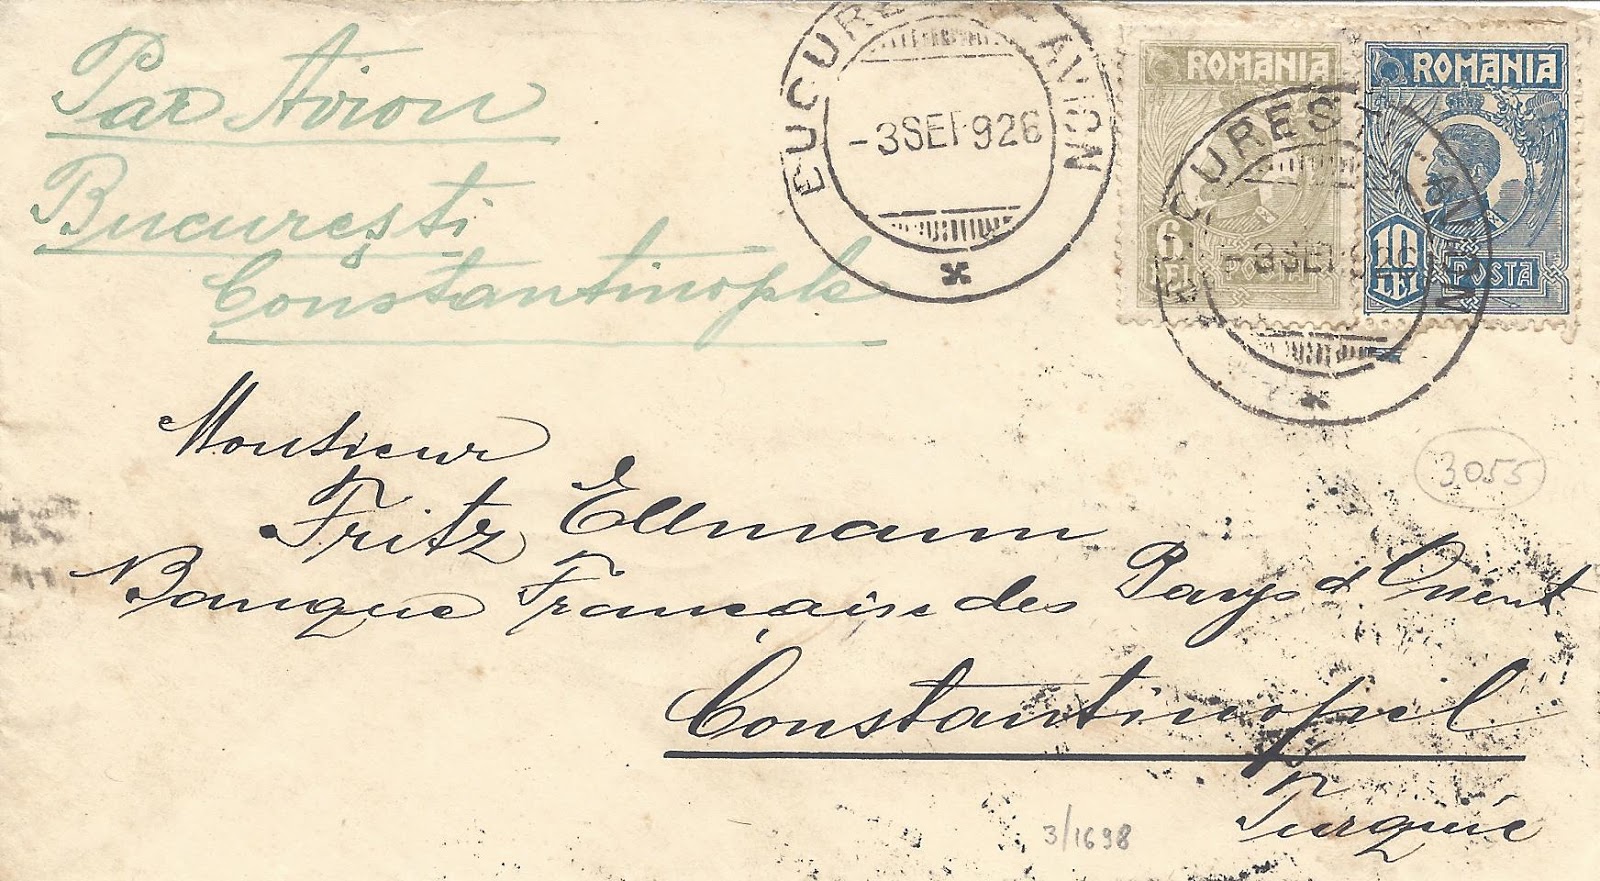 Par Avion
București
Constantinople
BUCUREȘTI AVION
-3SEP926
ROMANIA
6
LEI
POSTA
ROMANIA
10
LEI
POSTA
CUREȘTI AVION
-3SEP
Monsieur
Fritz Ellmann
Banque Française des Pays d'Orient
Constantinopel
Turquie
3055
3/1698